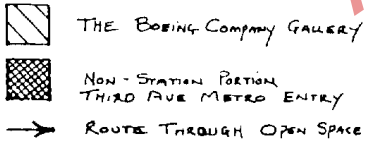 THE BOEING COMPANY GALLERY
NON-STATION PORTION
THIRD AVE METRO ENTRY
ROUTE THROUGH OPEN SPACE